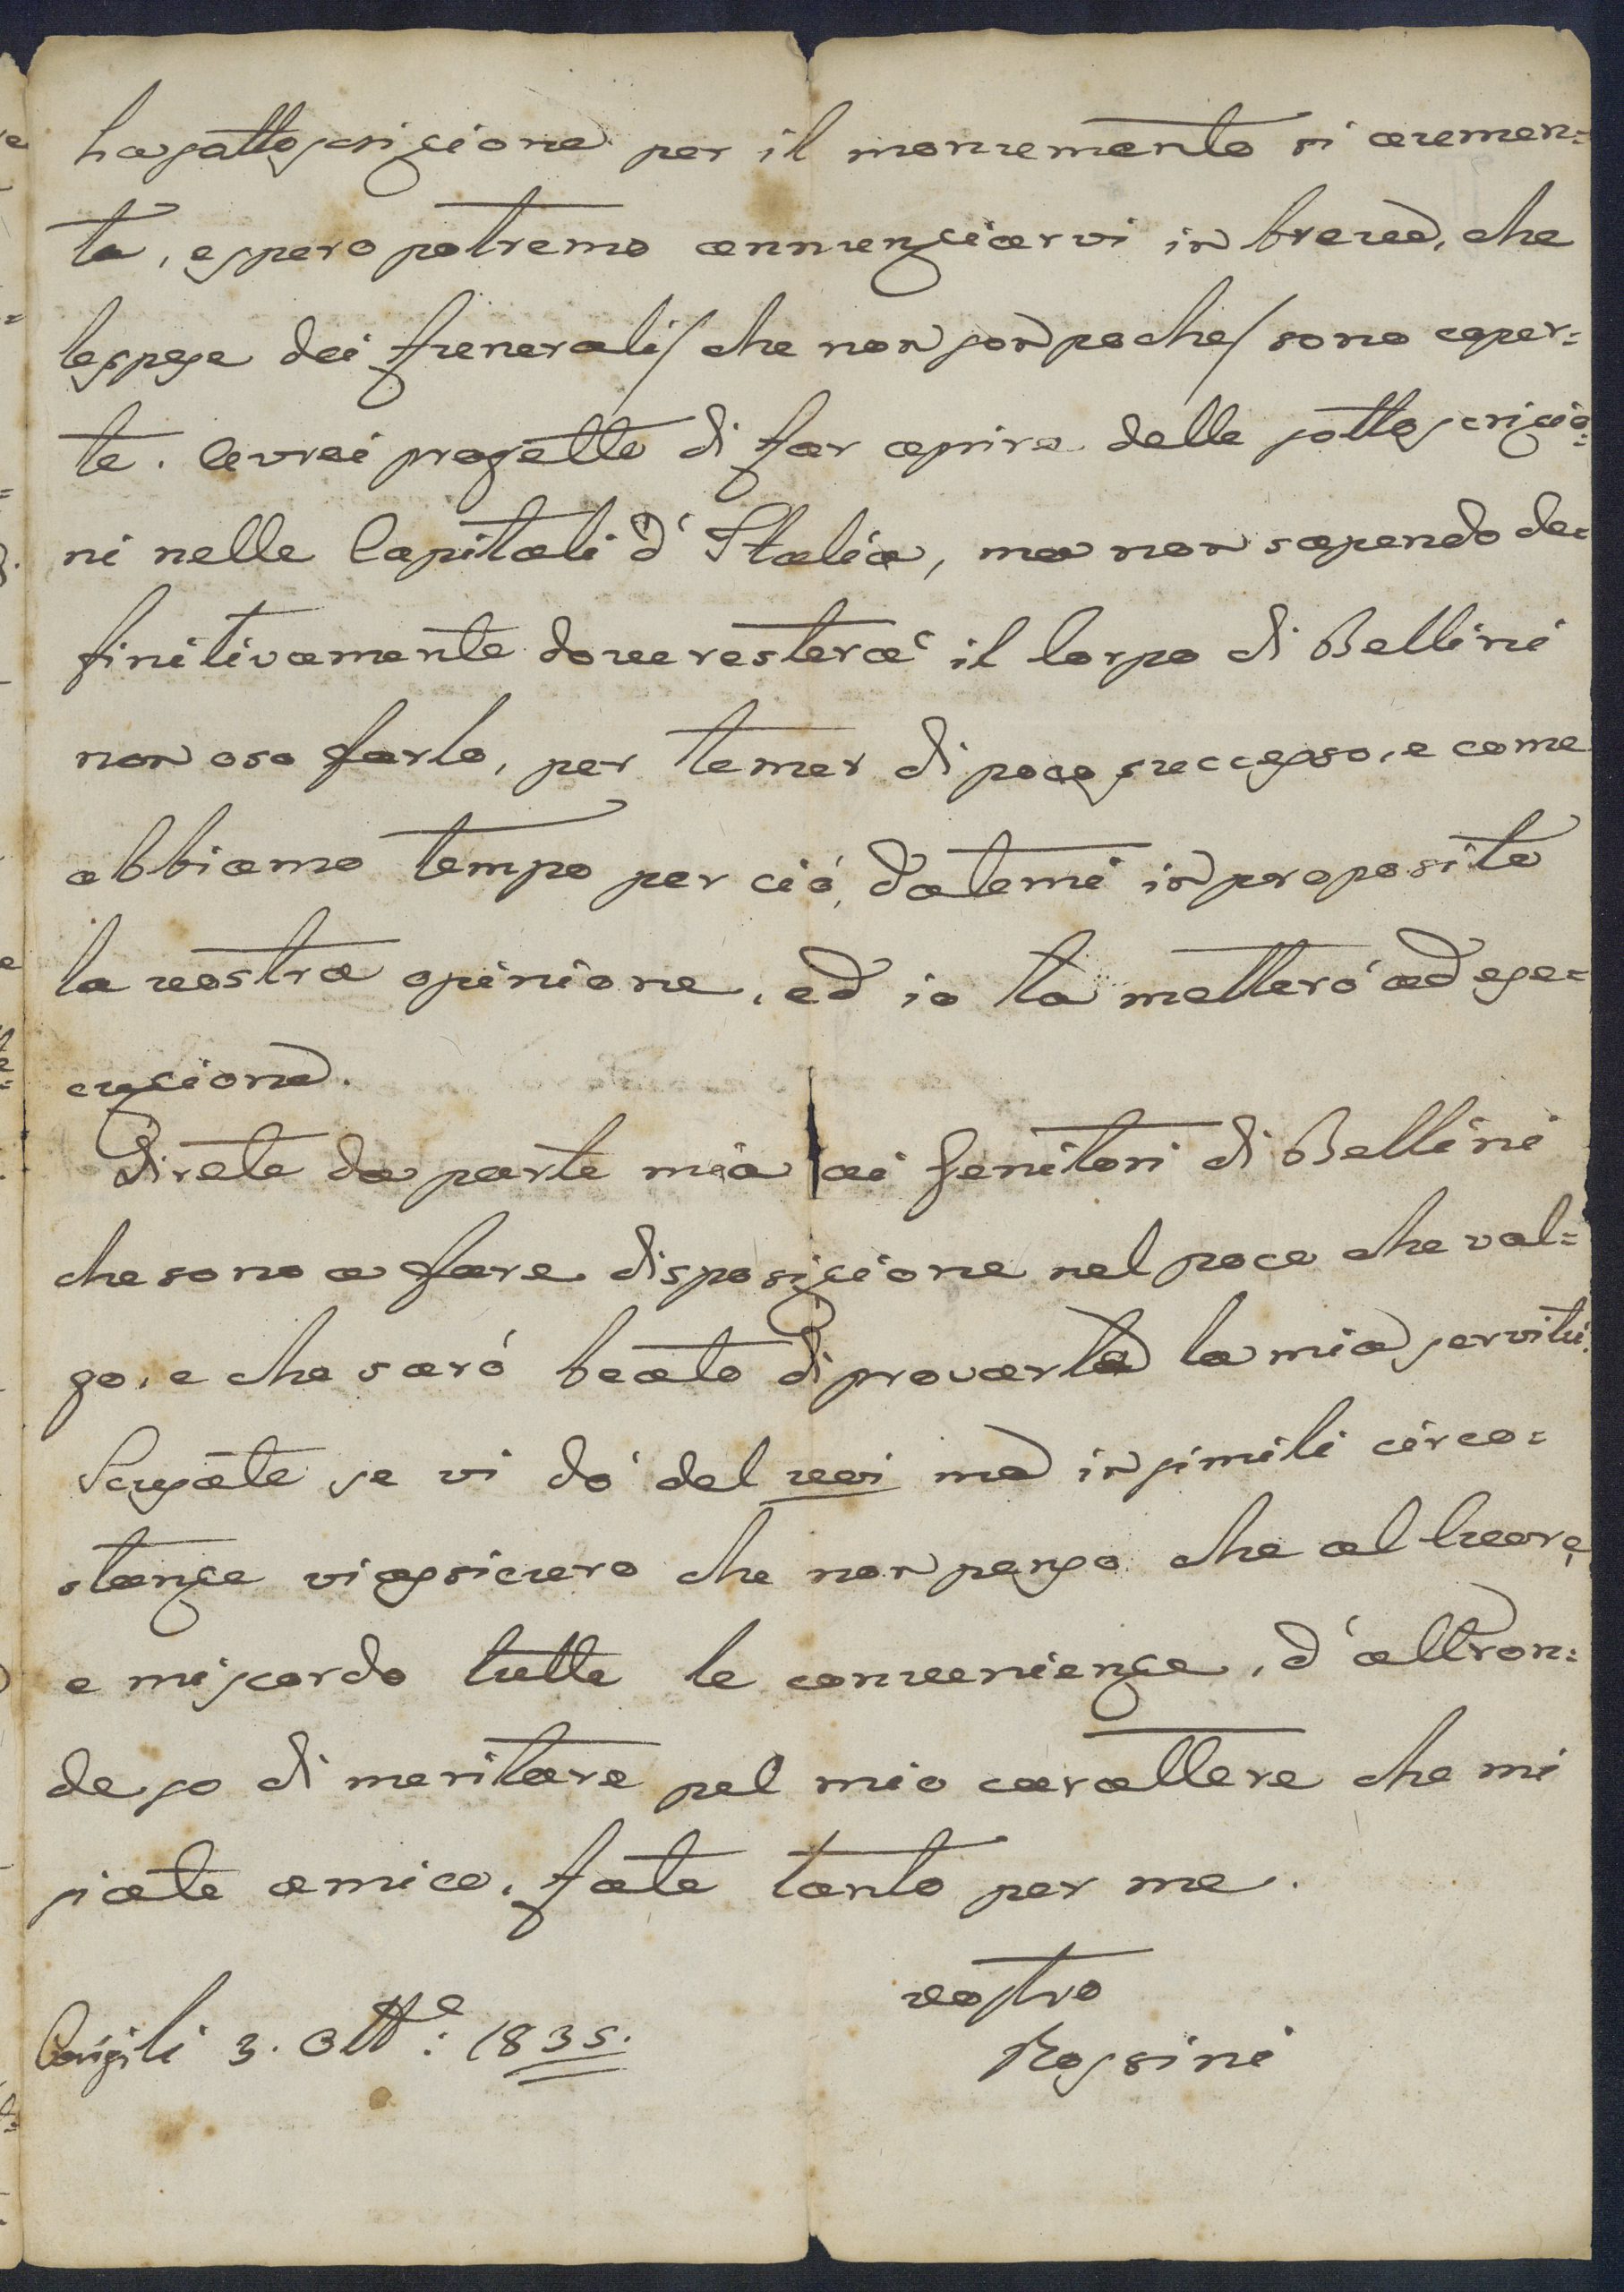 La sottoscrizione per il monumento si aumen=
ta, e spero potremo annunziarvi in breve, che
le spese dei funerali/ che non son poche/ sono coper=
te. Avrei progetto di far aprire delle sottoscrizio=
ni nelle Capitali d'Italia, ma non sapendo de=
finitivamente dove resterà il Corpo di Bellini
non oso farlo, per temer di poco successo, e come
abbiamo tempo per ció, datemi in proposito
la vostra opinione, ed io la metteró ad ese=
cuzione.
Direte da parte mia ai Genitori di Bellini
che sono a fare disposizione nel poco che val=
go, e che saró beato di provarle la mia servitú.
Scusate se vi dó del voi ma in simili circo=
stanze vi assicuro che non penso che al Cuore,
e mi scordo tutte le convenienze, d'altron=
de so di meritare pel mio carattere che mi
siate amico, fate tanto per me.
vostro
Rossini
Parigi li 3. Ott.e: 1835.